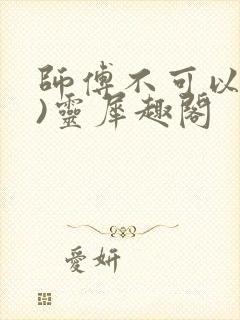 師傅不可以
)靈犀趣閣
愛妍